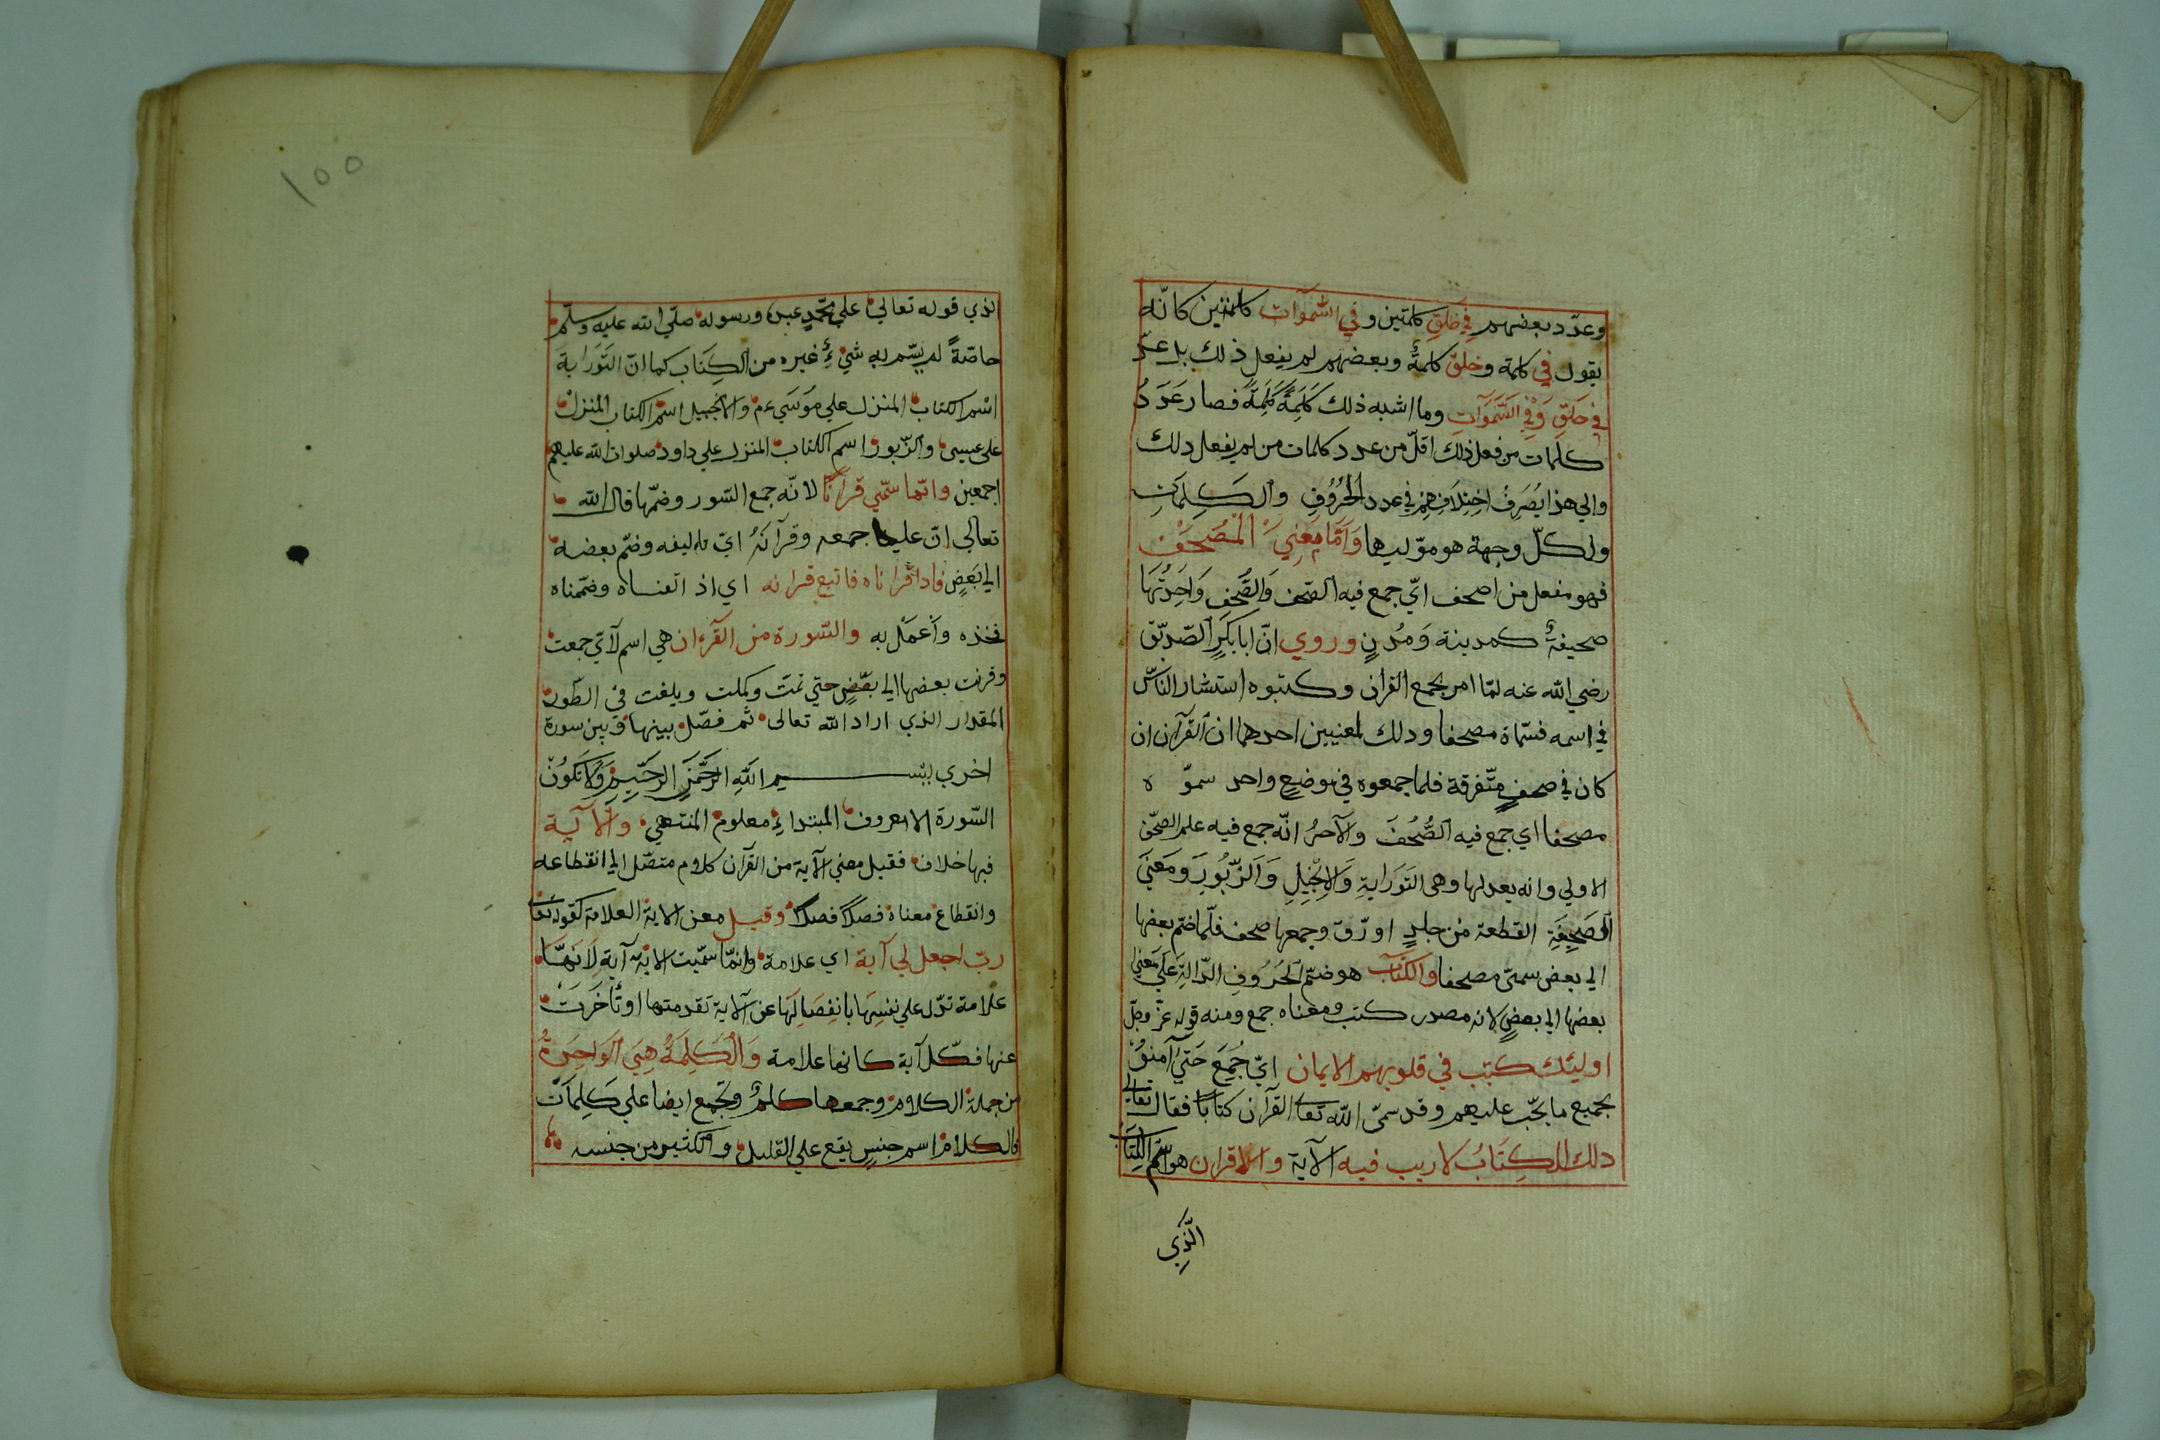 وعدّد بعضهم في خلق كلمتين و في السّموآت كلمتين كانّه
يقول في كلمة وخلق كلمةً وبعضهم لم يفعل ذلك بل عدّ
في خلقِ وَفي السَّمَوَآتِ وما اشبه ذلك كَلِمَةً كَلِمَةً فصار عَدَدُ
كلمات من فعل ذلك اقلّ من عدد كلمات من لم يفعل ذلك
والي هذا يُصَرِفُ اختِلَافِهِم في عدد الحُرُوُفِ والكَلِماَتِ
ولكلّ وجهة هو مولّيها وَاَمَّا مَعنِيَ المُصْحَفْ
فهو مفعل من اصحف ايّ جمع فيه الصّحف وَالصُّحُفِ وَاحِدَتُهَا
صحيفةٌ كمدينة وَمُدنٍ وروي انّ ابا بَكَرٍ الصّديّق
رضي الله عنه لمّا امر بجمع القرآن وكتبوه استشار النّاس
في اسمه فسّماه مصحفا وذلك لمعنيين احدهما ان القرآن ان
كان في صحفٍ متّفرقة فلما جمعوه في موضعٍ واحد سموّ ه
مصحفا اي جمع فيه الصُّحُفَ والآخرُ انّه جمع فيه علم الصحّف
الاولي وانه يعدلها وهى التَوَرايةِ وَالاِنْجِيلِ وَالزّبُوُرَ ومَعنَيَ
الصَحِيِفَةِ القطعة من جلدٍ او رّق وجمعها صحف فلّما ضمّ بعضها
الي بعض سمّى مصحفا والكتَابَ هو ضمّ الحُرُوُفِ الدّالةِ عَلَي مَعنِي
بعضها الي بعضٍ لانه مصدر كتب ومعناه جمع ومنه قوله عزّ وجلّ
اوليئك كتب في قلوبهم الايمان ايّ جُمِعَ حَتَيّ آمنوُ
بجميع ما يجّب عليهم وقد سمىّ الله تعالى القرآن كتابًا فقال تعالي
ذلك الكِتَابُ لاريب فيه الآية والاقران هو اسْم الكِتَاب
الَّذِي
١٠٠
الذي قوله تعالي علي محّمدٍ عبده ورسوله صلّي الله عليه وسلّم
خاصّةً لم يسّم به شيْءٌ غيره من الكِتَاب كما انّ التّوَراية
اسْم الكتاب المنزل علي موُسَيء م والانجيل اسْم الكتاب المنزل
على عيسى والزّبور اسم الكتاب المنزل علي داود صلوات الله عليهم
اجمعين وانّما سمّي قرآنًا لانّه جمع السّور وضمّها قال الله
تعالى انّ علينا جمعه وقرآنَهُ ايّ تاليفه وضّم بعضه
الي بَعَضٍ فاذا قراناه فاتبع قرانه اي اذ الّفناه وضمّمناه
فخذه واَعمَل به والسّورة من القرءان هي اسم لآيّ جمعت
وقرنت بعضها الي بعّضٍ حتي تمّت وكملت وبلغت في الطّول
المقدار الذي اراد الله تعالى ثم فصّل بينها وَ بين سورة
اخري ببسم اللهِ الرَحَّمنِ الرحَيِّمِ وَلاَ تكوُنْ
السّورة الا معروف المبتداء معلوم المنتهي والآية
فيها خلاف فقيل معني الآية من القرآن كلام متصّل الي انقطاعه
وانقطاع معناه فصلاً فصلاً وقيل معنى الاية العلامة كقوله تعا
ربّ اجعل لي آية اي علامة وانمّا سمّيت الاية آية لاَنّهَّا
علامة تدّل علي نفسِهَا بانفِصَالِهَا عن الآية تقدمتها اوتاَّخَرَتْ
عنها فكّل آية كانها علامة وَالْكَلِمَةُ هِيَ الوَاحِدَةُ
من جملة الكلام وجمعها كلمٌ وتجّمع ايضا علي كَلِمَاَتْ
فالكلام اسم جنسٍ يقع علي القليل والكثير من جنسه